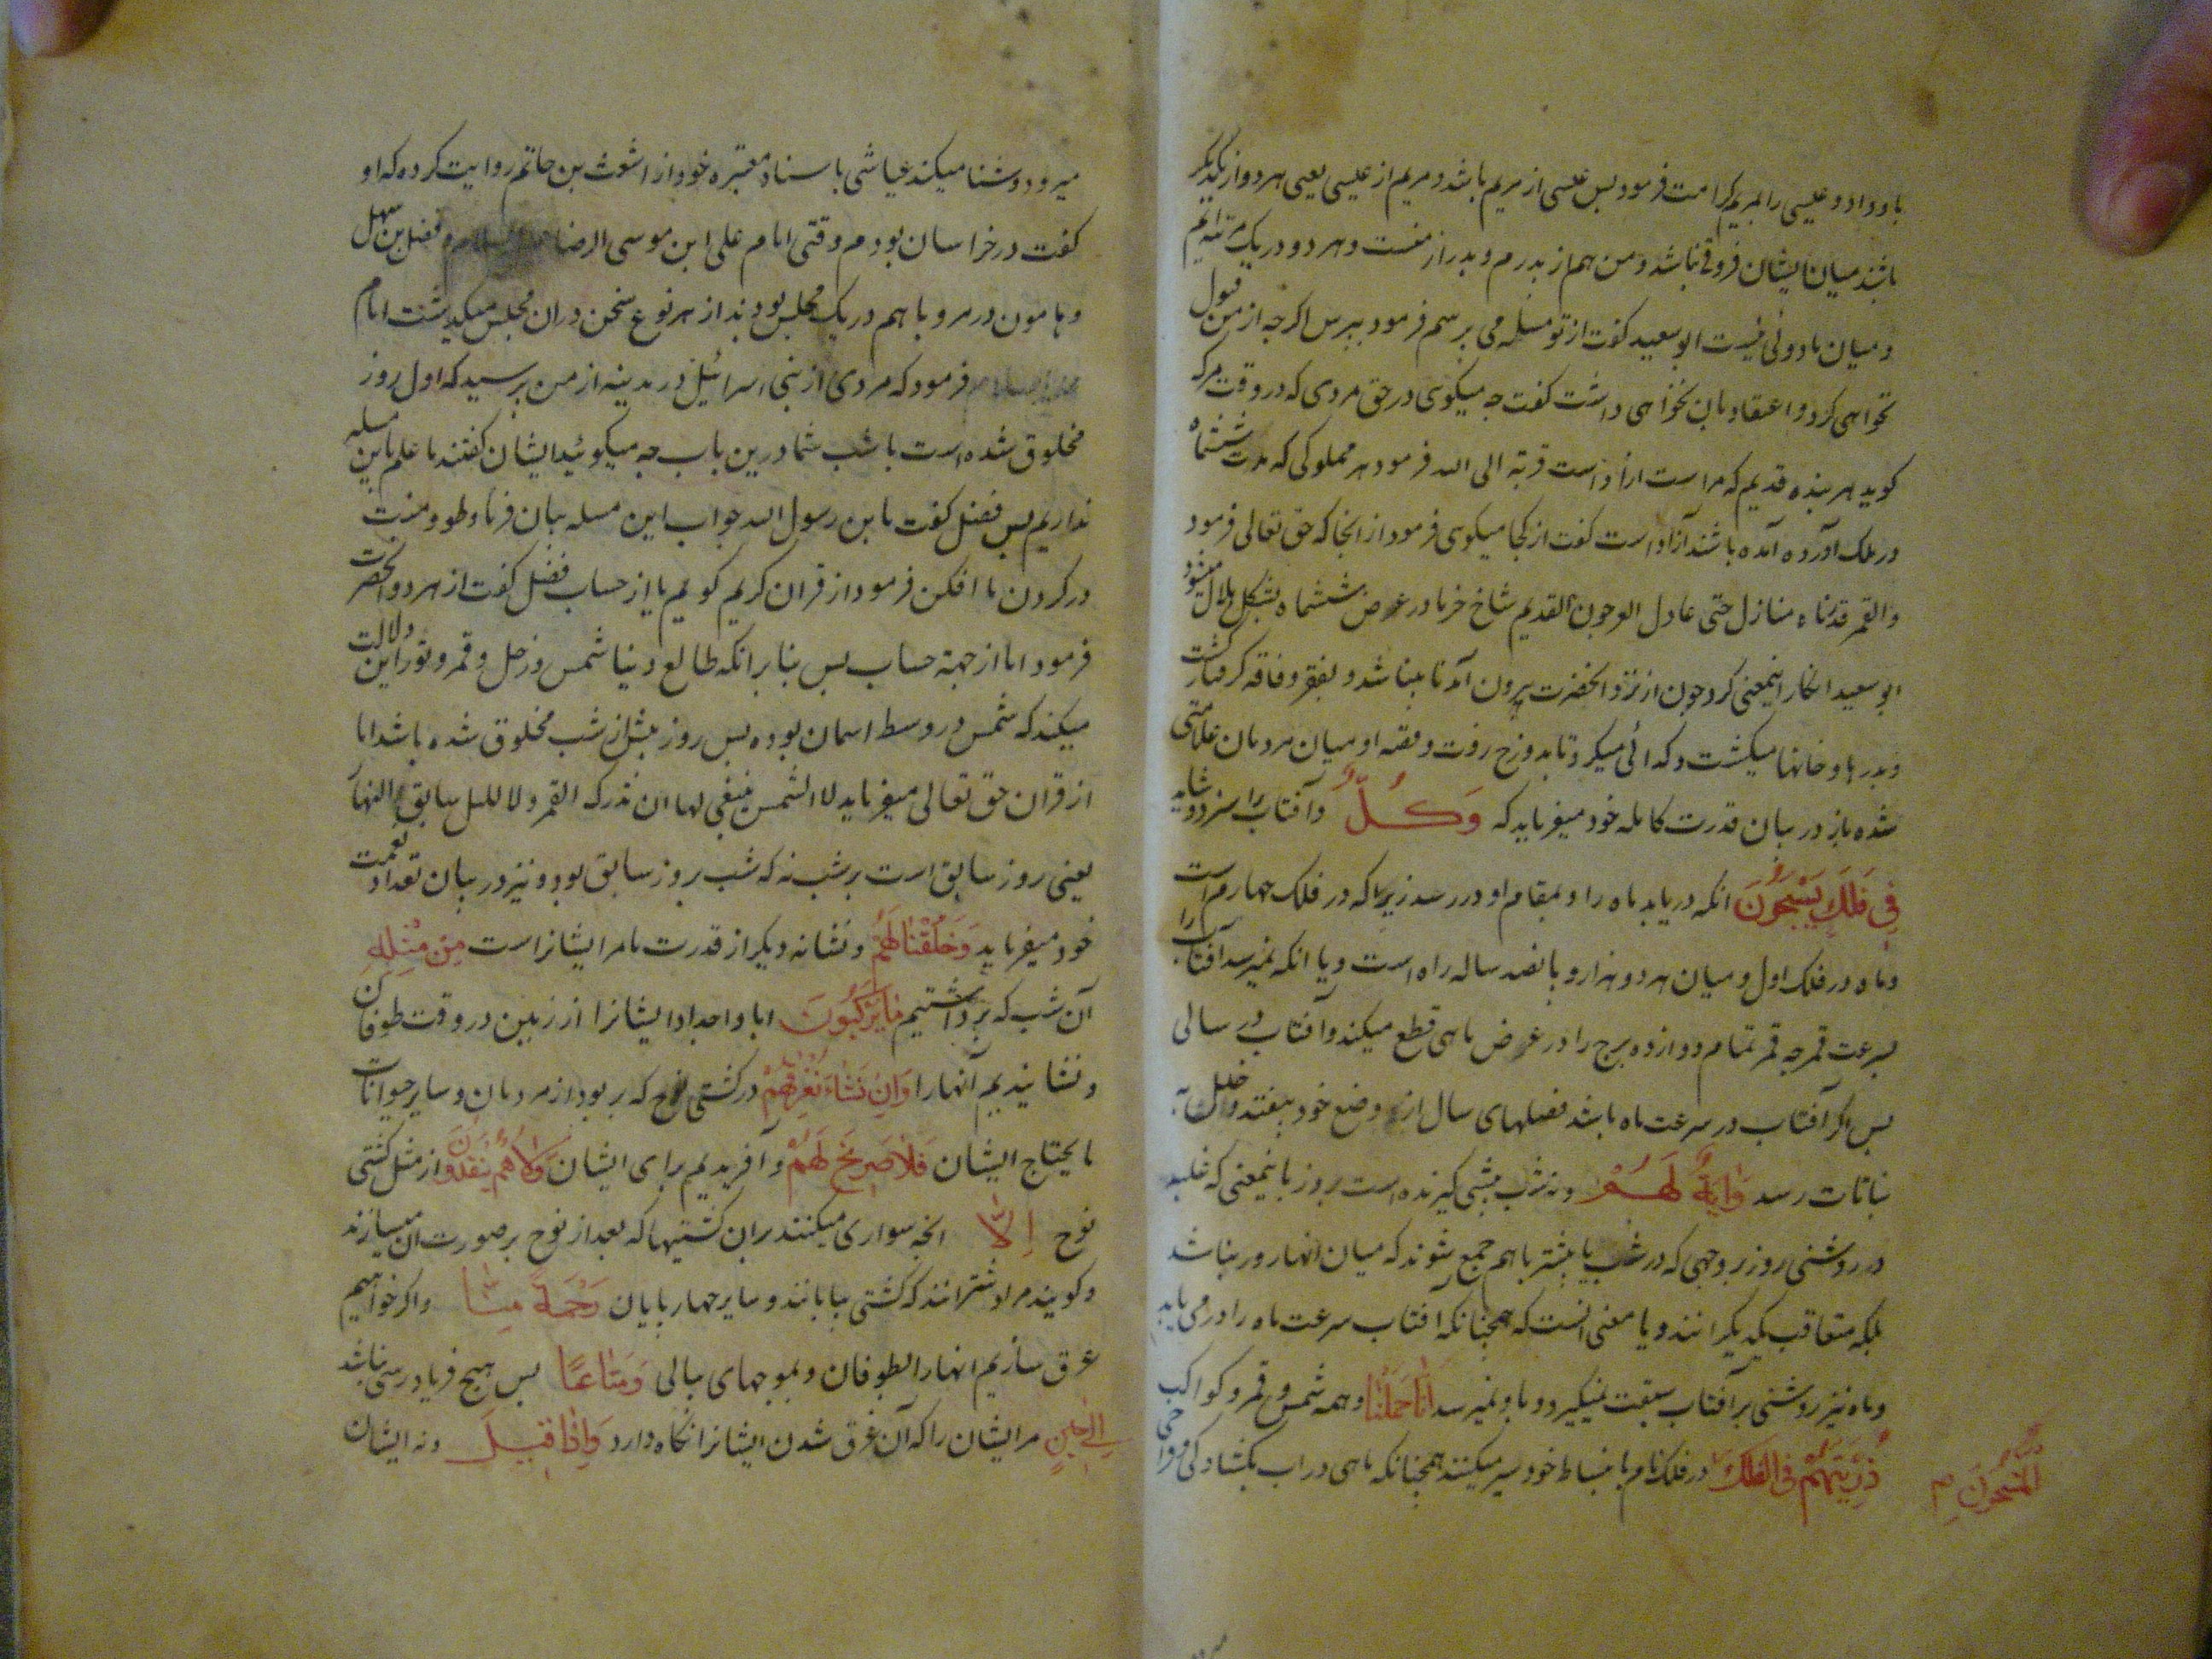 باو داد و عیسی را بمریم کرامت فرمود بس عیسی از مریم باشد و مریم از عیسی یعنی هر دو از یکدیکر
باشند میان ایشان فروقی نباشد و من هم از بدرم و بدر از منست و هر دو در یک مرتبه ایم
و میان ما دوئی نیست ابو سعید کفت از تو مسله می برسم فرمود ببرس اکر جه از من قبول
نخواهی کرد و اعتقاد بان نخواهی داشت کفت جه میکوی در حق مردی که در وقت مرک
کوید هر بنده قدیم که مراست ازاد است قربة الی الله فرمود هر مملوکی که مدت ششماه
در ملک آورده آمده باشند آزاد است کفت از کجا میکوی فرمود از انجا که حق تعالی فرمود
والقمر قدرناه منازل حتی عاد کالعرجون القدیم شاخ خرما در عرض ششماه بشکل هلال میشود
ابو سعید انکار اینمعنی کرد جون از نزد انحضرت بیرون آمد نابینا شد و بفقر و فاقه کرفتار کشت
و بدرها و خانها میکشت و کدائی میکرد تا بدوزخ رفت و قصه او میان مردمان علامتی
شده باز در بیان قدرت کامله خود میفرماید که وَكُلٌّ و آفتاب را سزد و شاید
فِي فَلَكٍ يَسْبَحُونَ انکه دریابد ماه را و بمقام او در رسد زیرا که در فلک جهارم است
و ماه در فلک اول و میان هر دو هزار و بانصد ساله راه است و یا انکه نمیرسد آفتاب را
سرعت قمر جه قمر تمام دوازده برج را در عرض ماهی قطع میکند و آفتاب در سالی
بس اکر آفتاب در سرعت ماه باشد فصلهای سال از وضع خود بیفتد و خلل به
نباتات رسد وَآيَةٌ لَهُمْ و نه شب بیشی کیرنده است بروز باینمعنی که غلبه
در روشنی روز بر وجهی که در شب یا بیشتر باهم جمع شوند که میان انها روز نباشد
بلکه متعاقب یکدیکرانند و یا معنی انست که همجنانکه آفتاب سرعت ماه را در می یابد
و ماه نیز روشنی بر آفتاب سبقت نمیکیرد و باو نمیرسد أَنَّا حَمَلْنَا و همه شمس و قمر و کواکب
ذُرِّيَّتَهُمْ فِي الْفُلْكِ در فلک نام بانبساط خود سیر میکنند همجنانکه ماهی در اب بکشادکی
الْمَشْحُونِ م
میرود و شنا میکند عیاشی باسناد معتبره خود از اشعث بن حاتم روایت کرده که او
کفت در خراسان بودم وقتی امام علی ابن موسی الرضا و فضل بن سهل
و مامون در مرو باهم در یک مجلس بودند از هر نوع سخن دران مجلس میکذشت امام
فرمود که مردی از بنی اسرائیل در مدینه از من برسید که اول روز
مخلوق شده است یا شب شما درین باب جه میکوئید ایشان کفتند ما علم باین مسله
نداریم بس فضل کفت یابن رسول الله جواب این مسله بیان فرما و طوق منت
در کردن ما افکن فرمود از قران کریم کویم یا از حساب فضل کفت از هر دو انحضرت
فرمود اما از جهة حساب بس بنا برانکه طالع دنیا شمس و زحل و قمر و ثور این دلالت
میکند که شمس در وسط اسمان بوده بس روز بیش از شب مخلوق شده باشد اما
از قران حق تعالی میفرماید لا الشمس ینبغی لها ان تدرک القمر ولا اللیل سابق النهار
یعنی روز سابق است بر شب نه که شب بروز سابق بود و نیز در بیان تعداد نعمت
خود میفرماید وَخَلَقْنَا لَهُمْ و نشانه دیکر از قدرت ما مر ایشانرا است مِنْ مِثْلِهِ
آن شب که برداشتیم مَا يَرْكَبُونَ ابا و اجداد ایشانرا از زمین در وقت طوفان
و نشاندیم آنها را وَإِنْ نَشَأْ نُغْرِقْهُمْ در کشتی نوح که بر بود از مردمان و سایر حیوانات
ما یحتاج ایشان فَلَا صَرِيخَ لَهُمْ و آفریدیم برای ایشان وَلَا هُمْ يُنْقَذُونَ از مثل کشتی
نوح إِلَّا انجه سواری میکنند بران کشتیها که بعد از نوح بر صورت ان میسازند
و کویند مراد شترانند که کشتی بیابانند و سایر جهاربایان رَحْمَةً مِنَّا و اکر خواهیم
غرق سازیم انها را بطوفان و بموجهای بیابی وَمَتَاعًا بس هیج فریاد رسی نباشد
إِلَىٰ حِينٍ مر ایشان را که آن غرق شدن ایشانرا نکاه دارد وَإِذَا قِيلَ و نه ایشان